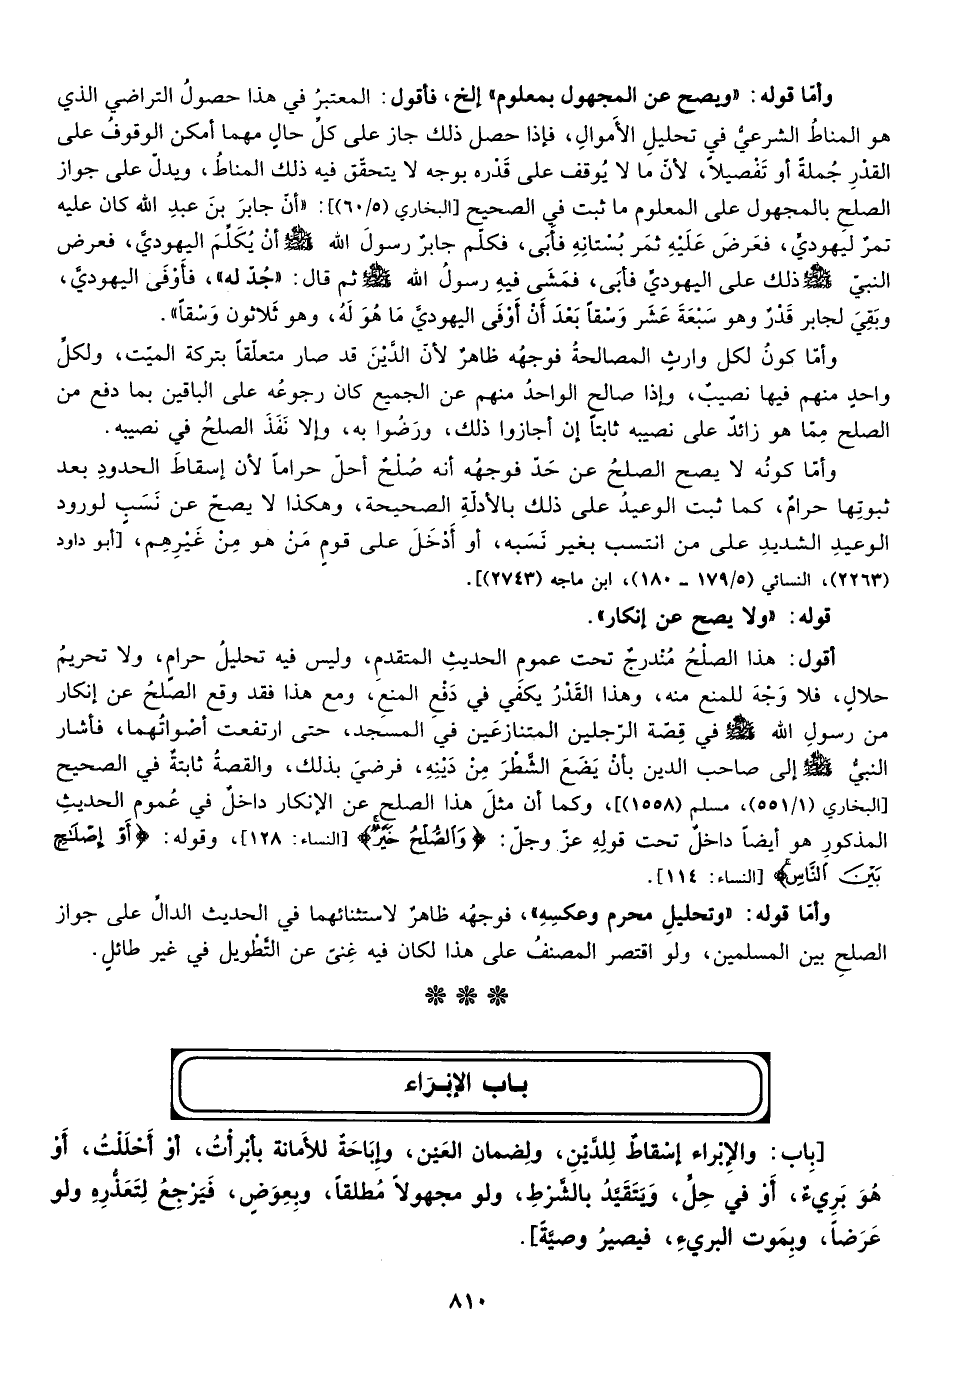 وأمّا قوله: «ويصح عن المجهول بمعلوم» إلخ، فأقول: المعتبرُ في هذا حصولُ التراضي الذي
هو المناطُ الشرعيُّ في تحليلِ الأموالِ، فإذا حصل ذلك جاز على كلِّ حالٍ مهما أمكن الوقوفُ على
القدْرِ جُملةً أو تَفْصيلاً، لأنّ ما لا يُوقف على قَدْره بوجه لا يتحقّق فيه ذلك المناطُ، ويدلّ على جواز
الصلح بالمجهول على المعلوم ما ثبت في الصحيح [البخاري (٦٠/٥)]: «أنّ جابرَ بنَ عبدِ الله كان عليه
تمرٌ ليهوديٍّ، فعَرضَ عَلَيْهِ ثمَر بُسْتانِهِ فأبَى، فكلّم جابرٌ رسولَ الله ﷺ أنْ يُكَلِّمَ اليهوديَّ، فعرض
النبيّ ﷺ ذلك على اليهوديِّ فأبى، فمَشَى فيهِ رسولُ الله ﷺ ثم قال: «جُدّ له»، فأَوْفَى اليهوديَّ،
وبَقِيَ لجابر قَدْرٌ وهو سَبْعَةَ عَشَر وَسْقاً بَعْدَ أنْ أَوْفَى اليهوديَّ مَا هُوَ لَهُ، وهو ثَلاثون وَسْقاً».
وأمّا كونُ لكل وارثٍ المصالحةُ فوجهُه ظاهرٌ لأنّ الدَّيْنَ قد صار متعلّقاً بتركة الميّت، ولكلِّ
واحدٍ منهم فيها نصيبٌ، وإذا صالح الواحدُ منهم عن الجميع كان رجوعُه على الباقين بما دفع من
الصلح مِمّا هو زائدٌ على نصيبه ثابتاً إن أجازوا ذلك، ورَضُوا به، وإلا نَفَذَ الصلحُ في نصيبه.
وأمّا كونُه لا يصح الصلحُ عن حَدّ فوجهُه أنه صُلْحٌ أحلّ حراماً لأن إسقاطَ الحدودِ بعد
ثبوتِها حرامٌ، كما ثبت الوعيدُ على ذلك بالأدلّةِ الصحيحة، وهكذا لا يصحّ عن نَسَبٍ لورود
الوعيدِ الشديدِ على من انتسب بغير نَسَبه، أو أَدْخَلَ على قومٍ مَنْ هو مِنْ غَيْرِهِم، [أبو داود
(٢٢٦٣)، النسائي (١٧٩/٥ - ١٨٠)، ابن ماجه (٢٧٤٣)].
قوله: «ولا يصح عن إنكار».
أقول: هذا الصلْحُ مُنْدرجٌ تحت عموم الحديثِ المتقدم، وليس فيه تحليلُ حرامٍ، ولا تحريمُ
حلالٍ، فلا وَجْهَ للمنع منه، وهذا القَدْرُ يكفي في دَفْعِ المنعِ، ومع هذا فقد وقع الصلحُ عن إنكار
من رسولِ الله ﷺ في قِصّة الرّجلين المتنازعَين في المسجد، حتى ارتفعت أصْواتُهما، فأشار
النبيُّ ﷺ إلى صاحب الدين بأنْ يَضَعَ الشَّطْرَ مِنْ دَيْنِهِ، فرضيَ بذلك، والقصةُ ثابتةٌ في الصحيح
[البخاري (٥٥١/١)، مسلم (١٥٥٨)]، وكما أن مثلَ هذا الصلح عن الإنكار داخلٌ في عُموم الحديثِ
المذكورِ هو أيضاً داخلٌ تحت قولِهِ عزّ وجلّ: ﴿وَالصُّلْحُ خَيْرٌ﴾ [النساء: ١٢٨]، وقوله: ﴿أَوْ إِصْلَاحٍ
بَيْنَ النَّاسِ﴾ [النساء: ١١٤].
وأمّا قوله: «وتحليلِ محرم وعكسِهِ»، فوجهُه ظاهرٌ لاستثنائهما في الحديث الدالِّ على جواز
الصلحِ بين المسلمين، ولو اقتصر المصنفُ على هذا لكان فيه غِنىً عن التَّطْويل في غير طائلٍ.
❊ ❊ ❊
باب الإبْرَاء
[بابُ: والإبْراء إسْقاطٌ لِلدَّيْنِ، ولِضمان العَيْن، وإبَاحَةٌ للأمانة بأبْرأْتُ، أوْ أَحْلَلْتُ، أَوْ
هُوَ بَرِيءٌ، أَوْ في حِلٍّ، وَيَتَقَيَّدُ بالشَّرْطِ، ولو مجهولاً مُطلقاً، وبِعِوَضٍ، فَيَرْجِعُ لِتَعَذُّرِهِ ولو
عَرَضاً، وبِمَوت البريءِ، فيصيرُ وصيَّةً].
٨١٠